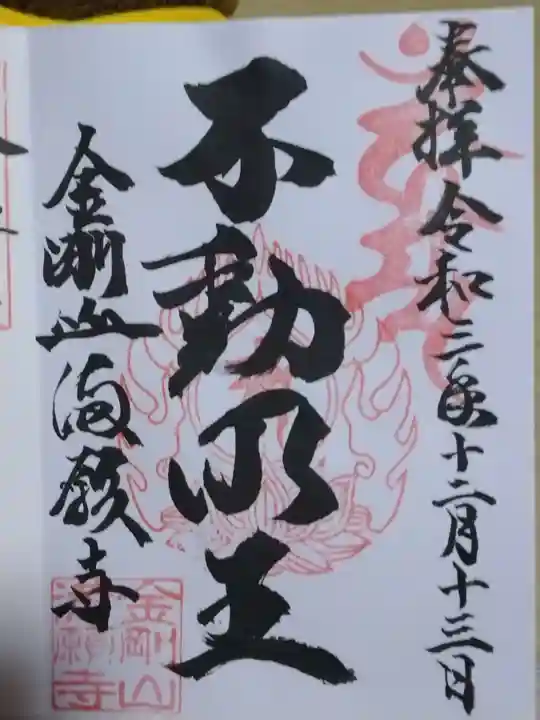 奉拝 令和三年十二月十三日
不動明王
金剛山満願寺
金剛山
満願寺